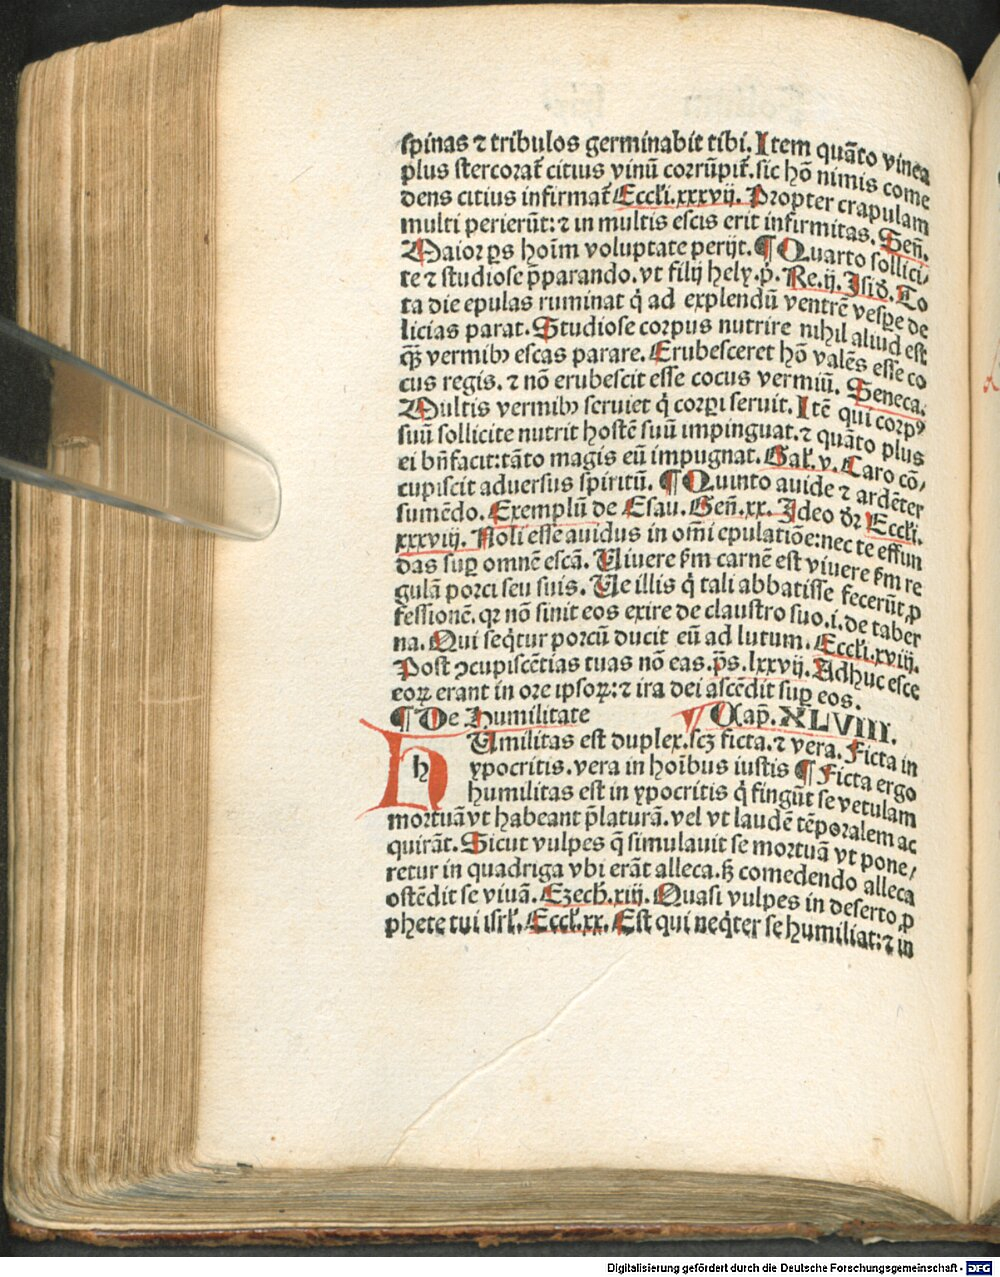 spinas ⁊ tribulos germinabit tibi. Item quāto vinea
plus stercorat̄ citius vinū corrūpit̄. sic hō nimis come
dens citius infirmat̄ Eccl̄i. xxxvij. Propter crapulam
multi perierūt: ⁊ in multis escis erit infirmitas. Señ.
Maior ꝑs hoīm voluptate perijt. ¶ Quarto sollici/
te ⁊ studiose p̄parando. vt filij hely. p̄. Re. ij. Isid̄. To
ta die epulas ruminat q̇ ad explendū ventrē vesꝑe de
licias parat. Studiose corpus nutrire nihil aliud est
qȝ̄ vermibꝰ escas parare. Erubesceret hō valēs esse co
cus regis. ⁊ nō erubescit esse cocus vermiū. Seneca.
Multis vermibꝰ seruiet q̇ corꝑi seruit. Itē qui corpꝰ
suū sollicite nutrit hostē suū impinguat. ⁊ quāto plus
ei bn̄facit: tāto magis eū impugnat. Gal̄. v. Caro cō/
cupiscit aduersus spiritū. ¶ Quinto auide ⁊ ardēter
sumēdo. Exemplū de Esau. Geñ. xx. Ideo dr̄ Eccl̄i.
xxxviij. Noli esse auidus in om̄i epulatiōe: nec te effun
das suꝑ omnē escā. Uiuere ẜm carnē est viuere ẜm re
gulā porci seu suis. Ue illis q̇ tali abbatisse fecerūt ꝓ
fessionē. qꝛ nō sinit eos exire de claustro suo. i. de taber
na. Qui seq̇tur porcū ducit eū ad lutum. Eccl̄i. xviij.
Post ꝯcupiscētias tuas nō eas. p̄s. lxxvij. Adhuc esce
eoꝝ erant in ore ipsoꝝ: ⁊ ira dei ascēdit suꝑ eos.
¶ De Humilitate ¶ Cap̄. XLVIII.
h Umilitas est duplex. scȝ ficta. ⁊ vera. Ficta in
ypocritis. vera in hoībus iustis ¶ Ficta ergo
humilitas est in ypocritis q̇ fingūt se vetulam
mortuā vt habeant p̄laturā. vel vt laudē tēporalem ac
quirāt. Sicut vulpes q̄ simulauit se mortuā vt pone/
retur in quadriga vbi erāt alleca. sȝ comedendo alleca
ostēdit se viuā. Ezech̄. xiij. Quasi vulpes in deserto ꝓ
phete tui isrl̄. Eccl̄. xx. Est qui neq̇ter se humiliat: ⁊ in
Digitalisierung gefördert durch die Deutsche Forschungsgemeinschaft - DFG